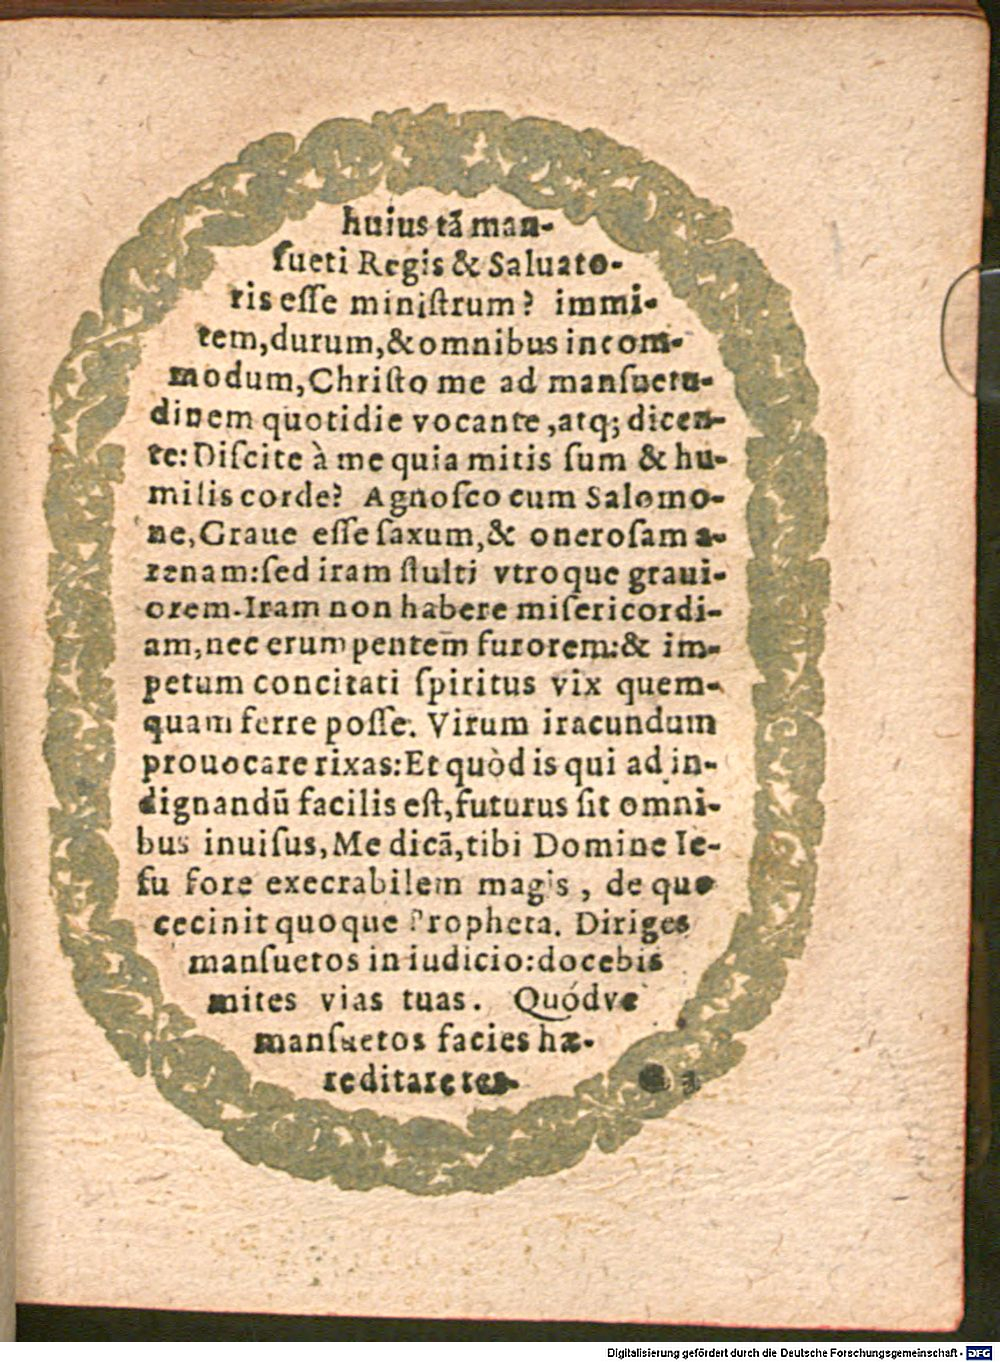 huius tã man-
ſueti Regis & Saluato-
ris eſſe miniſtrum? immi-
tem, durum, & omnibus incom-
modum, Chriſto me ad manſuetu-
dinem quotidie vocante, atq; dicen-
te: Diſcite à me quia mitis ſum & hu-
milis corde? Agnoſco cum Salomo-
ne, Graue eſſe ſaxum, & oneroſam a-
renam: ſed iram ſtulti vtroque graui-
orem. Iram non habere miſericordi-
am, nec erumpentem furorem: & im-
petum concitati ſpiritus vix quem-
quam ferre poſſe. Virum iracundum
prouocare rixas: Et quòd is qui ad in-
dignandũ facilis eſt, futurus ſit omni-
bus inuiſus, Me dicã, tibi Domine Ie-
ſu fore execrabilem magis, de quo
cecinit quoque Propheta. Diriges
manſuetos in iudicio: docebis
mites vias tuas. Quódve
manſuetos facies hæ-
reditare ter-
Digitalisierung gefördert durch die Deutsche Forschungsgemeinschaft - DFG